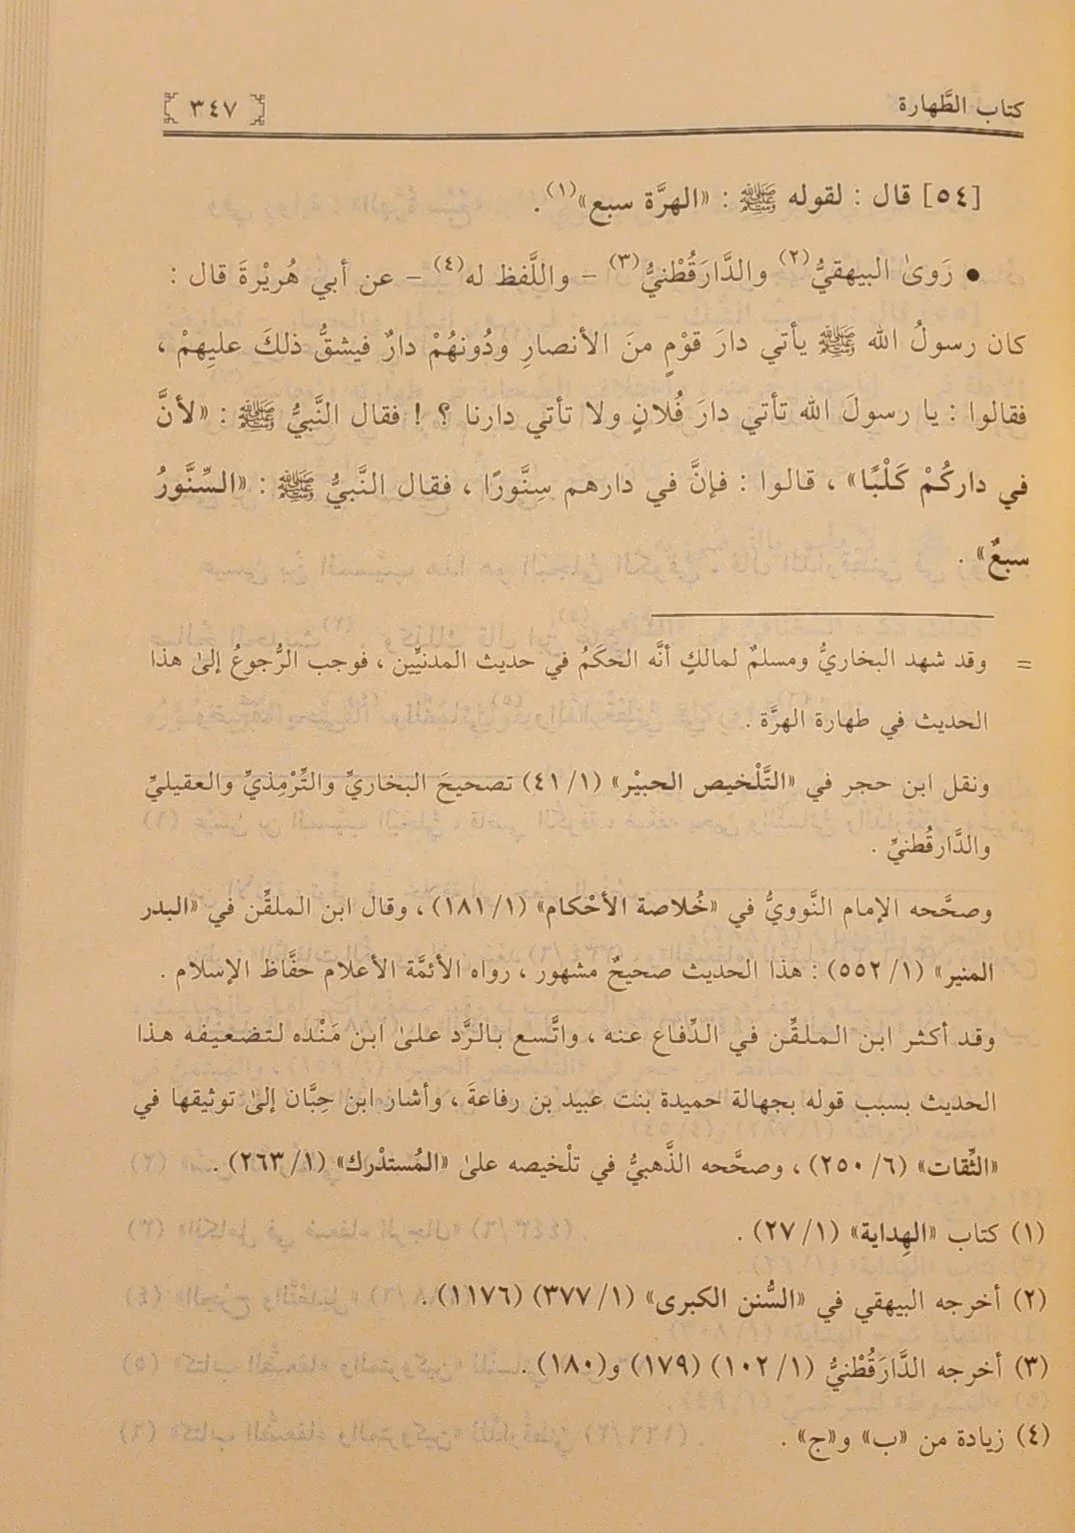 كتاب الطَّهارة
[ ٣٤٧ ]
[٥٤] قال : لقوله ﷺ : «الهرَّة سبع»(١) .
• رَوىٰ البيهقيُّ(٢) والدَّارَقُطْنيُّ(٣) – واللَّفظ له(٤) – عن أبي هُريْرةَ قال :
كان رسولُ الله ﷺ يأتي دارَ قوْمٍ منَ الأنصارِ ودُونهُمْ دارٌ فيشقُّ ذلكَ عليهِمْ ،
فقالوا : يا رسولَ الله تأتي دارَ فُلانٍ ولا تأتي دارنا ؟ ! فقال النَّبيُّ ﷺ : «لأنَّ
في داركُمْ كَلْبًا» ، قالوا : فإنَّ في دارهم سِنَّورًا ، فقال النَّبيُّ ﷺ : «السِّنَّورُ
سبعٌ» .
= وقد شهد البخاريُّ ومسلمٌ لمالكٍ أنَّه الحكَمُ في حديث المدنيِّين ، فوجب الرُّجوعُ إلىٰ هذا
الحديث في طهارة الهرَّة .
ونقل ابن حجر في «التَّلْخيص الحبيْر» (١/ ٤١) تصحيحَ البخاريِّ والتِّرْمِذيِّ والعقيليِّ
والدَّارقُطنيِّ .
وصحَّحه الإمام النَّوويُّ في «خُلاصة الأحْكام» (١/ ١٨١) ، وقال ابن الملقِّن في «البدر
المنير» (١/ ٥٥٢) : هذا الحديث صحيحٌ مشهور ، رواه الأئمَّة الأعلام حفَّاظ الإسلام .
وقد أكثر ابن الملقِّن في الدِّفاع عنه ، واتَّسع بالرَّد علىٰ ابن مَنْده لتضعيفه هذا
الحديث بسبب قوله بجهالة حميدة بنت عبيد بن رفاعةَ ، وأشار ابن حِبَّان إلىٰ توثيقها في
«الثِّقات» (٦/ ٢٥٠) ، وصحَّحه الذَّهبيُّ في تلْخيصه علىٰ «المُستدْرك» (١/ ٢٦٣) .
(١) كتاب «الهِداية» (١/ ٢٧) .
(٢) أخرجه البيهقي في «السُّنن الكبرى» (١/ ٣٧٧) (١١٧٦) .
(٣) أخرجه الدَّارَقُطْنيُّ (١/ ١٠٢) (١٧٩) و(١٨٠) .
(٤) زيادة من «ب» و«ج» .